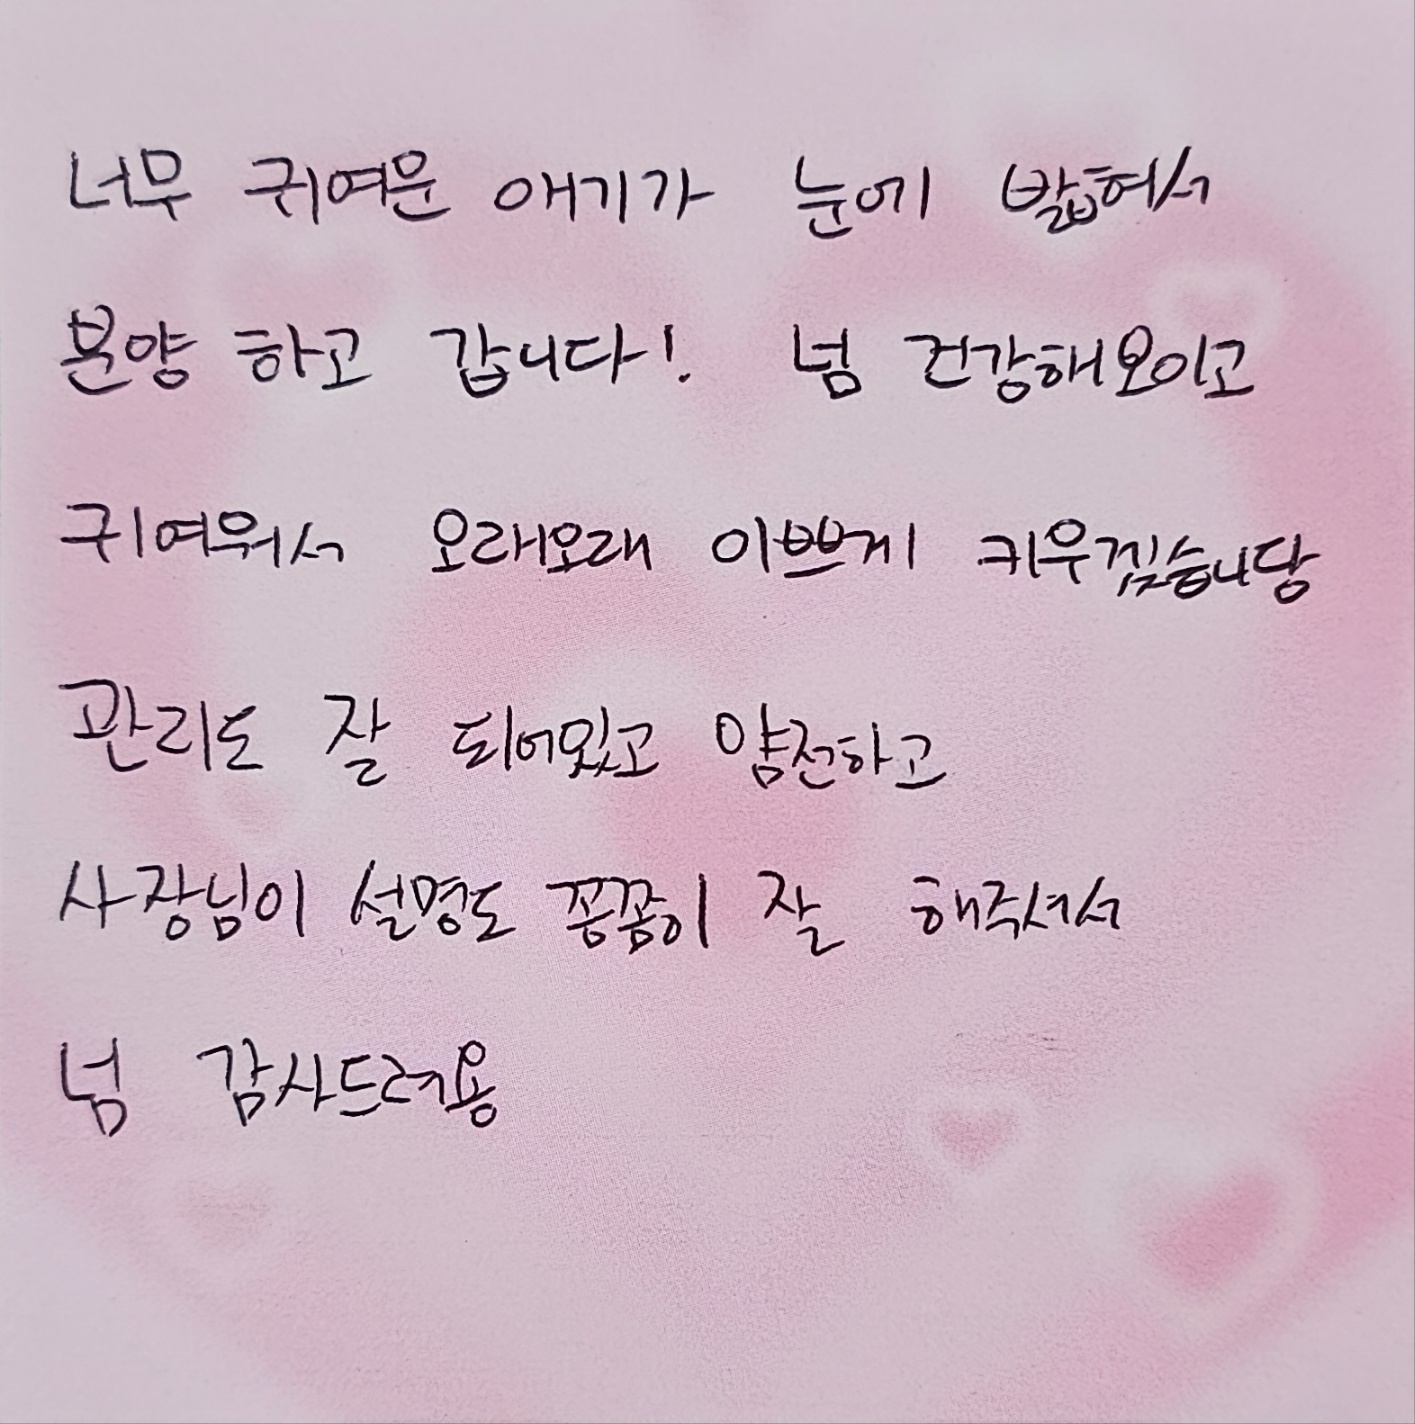 너무 귀여운 애기가 눈에 밟혀서
분양 하고 갑니다! 넘 건강해보이고
귀여워서 오래오래 이쁘게 키우겠습니당
관리도 잘 되어있고 얌전하고
사장님이 설명도 꼼꼼히 잘 해주셔서
넘 감사드려용